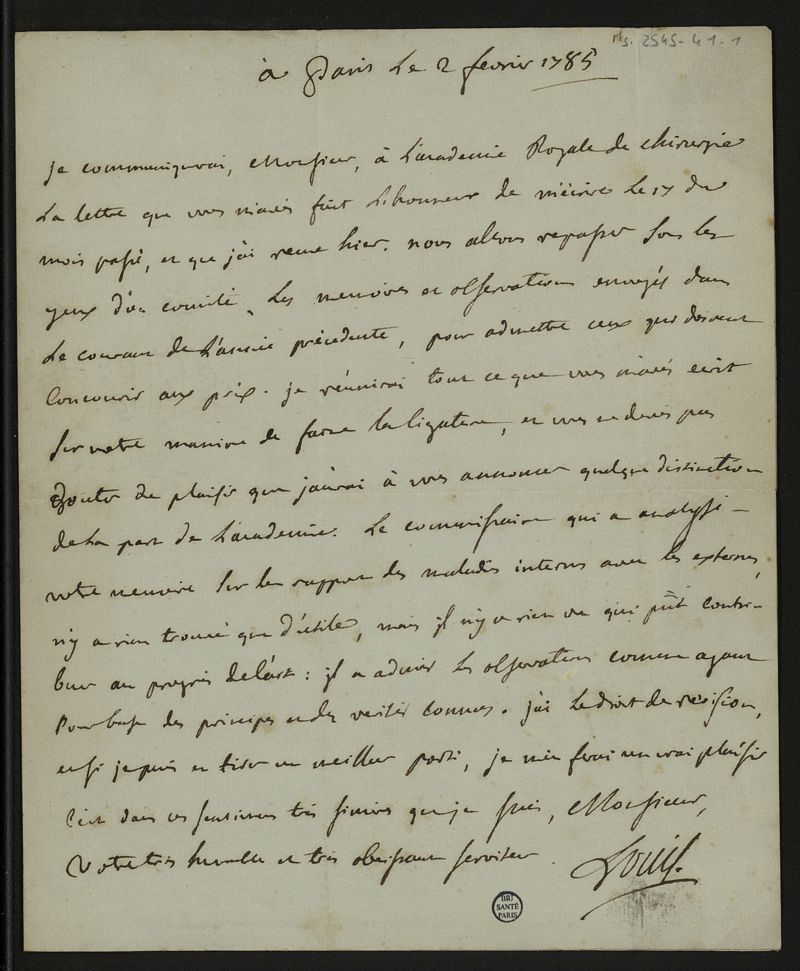 Ms. 2545-41-1
à Paris Le 2 fevrier 1785
je communiquerai, Monsieur, à L'academie Royale de chirurgie
La lettre que vous m'avés fait L'honneur de m'écrire Le 17 du
mois passé, et que j'ai recue hier. nous allons repasser sous les
yeux d'un comité, Les memoires et observations envoyés dans
Le courant de L'année précédente, pour admettre ceux qui doivent
Concourir aux prix. je réunirai tout ce que vous m'avés ecrit
sur votre maniere de faire la ligature, et vous ne devés pas
douter du plaisir que j'aurai à vous annoncer quelque distinction
de la part de L'academie. Le commissaire qui a analysé
votre memoire sur les rapports des maladies internes avec les externes,
n'y a rien trouvé que d'utile, mais il n'y a rien vu qui pût contri-
buer au progrès de l'art: il a admiré les observations comme ayant
Pour base des principes et des verités connues. j'ai Le droit de revision,
et si je puis en tirer un meilleur parti, je m'en ferai un vrai plaisir
C'est dans ces sentimens très sinceres que je suis, Monsieur,
Votre très humble et très obeissant serviteur. Louis.
BIU
SANTÉ
PARIS